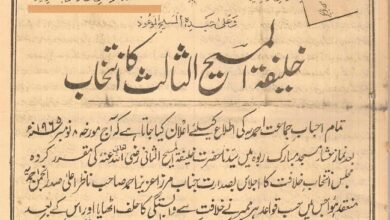 وعلیٰ عبدہ المسیح الموعود
خلیفۃ المسیح الثالث کا انتخاب
تمام احباب جماعت احمدیہ کی اطلاع کیلئے اعلان کیا جاتا ہے کہ آج مورخہ ۸ نومبر ۱۹۶۵ء
بعد نماز عشاء مسجد مبارک ربوہ میں سیدنا حضرت خلیفۃ المسیح الثانی رضی اللہ عنہ کی مقرر کردہ
مجلس انتخاب خلافت کا اجلاس بصدارت جناب مرزا عزیز احمد صاحب ناظر اعلیٰ صدر انجمن احمدیہ
منعقد ہوا جس میں حسب قواعد ہر ممبر نے خلافت سے وابستگی کا حلف اٹھایا اور اس کے بعد